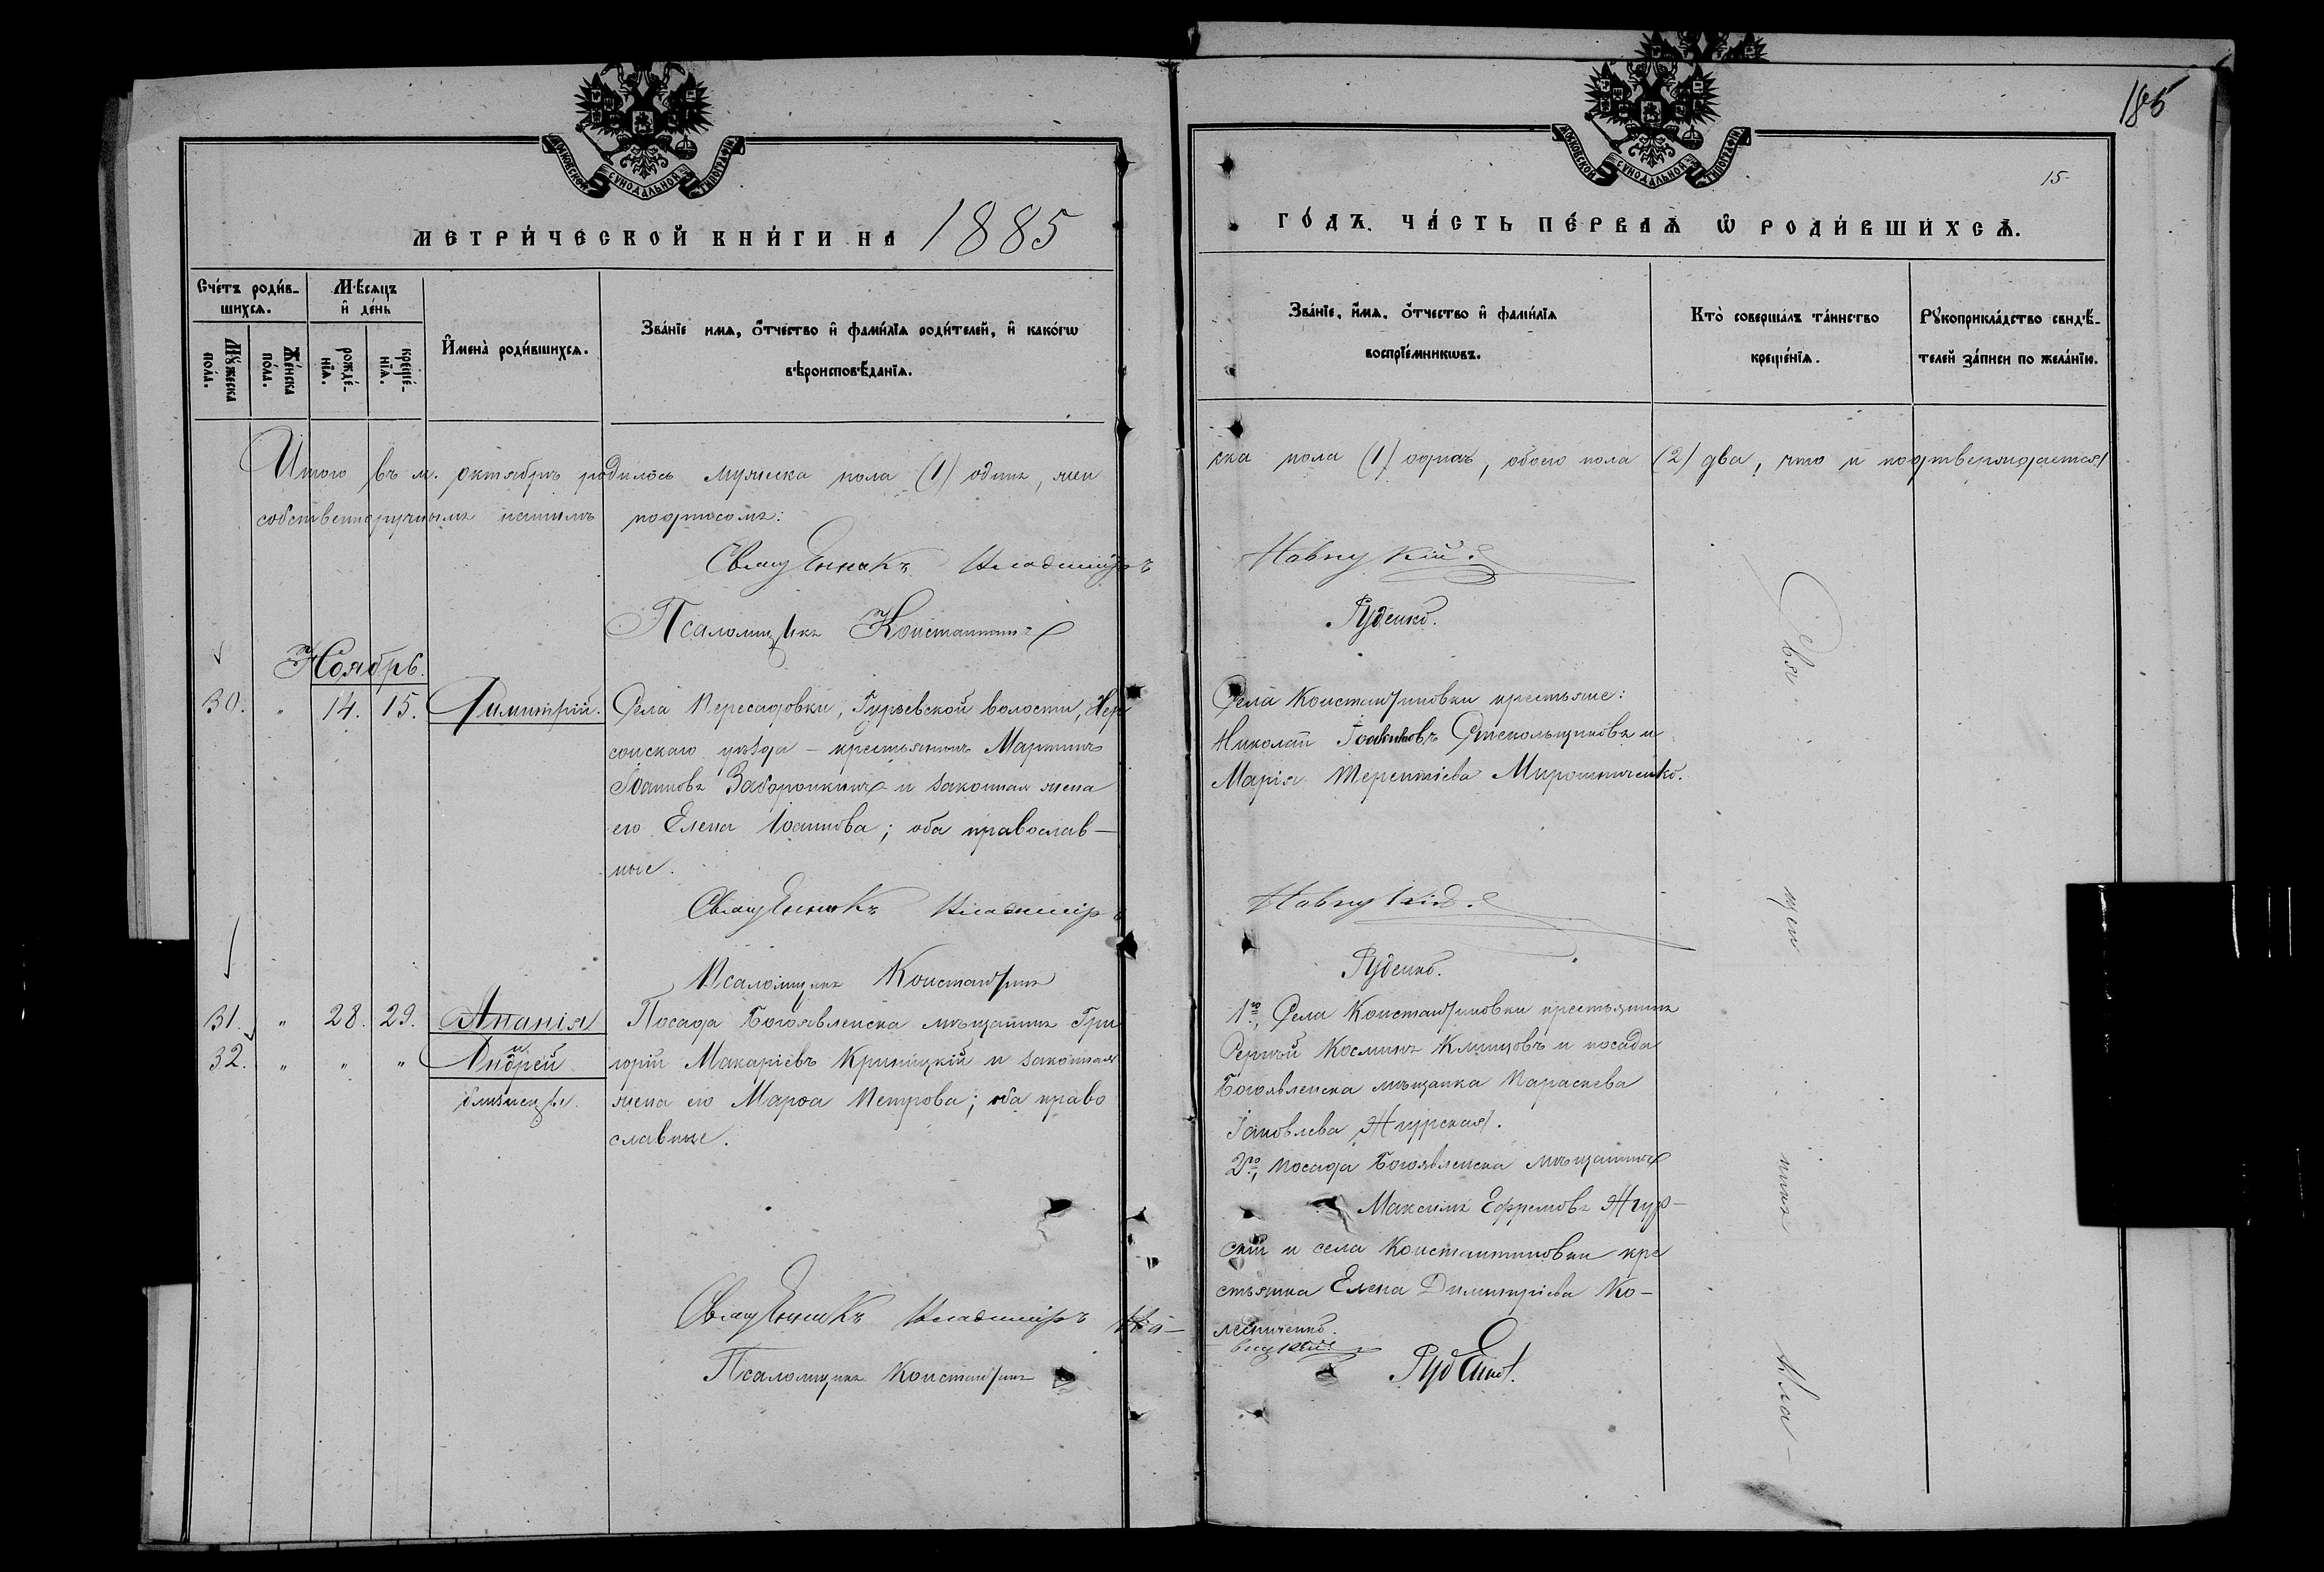 МОСКОВСКОЙ СѴНОДАЛЬНОЙ ТИПОГРАФІИ
МЕТРИ́ЧЕСКОЙ КНИ́ГИ НА 1885
Сче́тъ роди́в-
шихсѧ.
Мꙋ́жеска
по́ла.
Же́нска
по́ла.
Мѣ́сѧцъ
и҆ де́нь
рожде́-
нїѧ.
креще́-
нїѧ.
И҆мена̀ роди́вшихсѧ.
Зва́нїе имѧ, ѻ҆́тчество и҆ фами́лїѧ роди́телей, и҆ како́гѡ
вѣроисповѣ́данїѧ.
Итого въ м. октябрѣ родилось мужеска пола (1) одинъ, жен
собственноручнымъ нашимъ подписомъ:
Священникъ Владиміръ
Псаломщикъ Константинъ
Ноябрь.
30. " 14. 15. Димитрій. Села Пересадовки, Гурьевской волости, Хер
сонскаго уѣзда – крестьянинъ Мартинъ
Іоанновъ Заборонкинъ и законная жена
его Елена Іоаннова; оба православ–
ные.
Священникъ Владиміръ
Псаломщикъ Константинъ
31. " 28. 29. Ананія Посада Богоявленска мѣщанинъ Гри
и
32. " " " Андрей горій Макаріевъ Криницкій и законная
близнецы. жена его Марѳа Петрова; оба право
славные.
Священникъ Владиміръ На–
Псаломщикъ Константинъ
185
МОСКОВСКОЙ СѴНОДАЛЬНОЙ ТИПОГРАФІИ
15
ГО́ДЪ. ЧА́СТЬ ПЕ́РВАѦ Ѡ҆ РОДИ́ВШИХСѦ.
Зва́нїе, и҆́мѧ, ѻ҆́тчество и҆ фами́лїѧ
воспрїе́мникѡвъ.
Кто̀ соверша́лъ та́инство
креще́нїѧ.
Рꙋкоприкла́дство свидѣ́-
телей за́писи по жела́нїю.
ска пола (1) одна, обоего пола (2) два, что и подтверждается
Навнуцкій.
Руденко.
Села Константиновки крестьяне:
Николай Стекольщиковъ и
Марія Терентіева Мирошниченко.
Навнуцкій.
Руденко.
1го, Села Константиновки крестьянинъ
Сергѣй Косминъ Климовъ и посада
Богоявленска мѣщанка Параскева
Іаковлева Жгурская.
2го, посада Богоявленска мѣщанинъ
Максимъ Ефремовъ Жгур–
скій и села Константиновки кре
стьянка Елена Димитріева Ко–
лесниченко.
внуцкій
Руденко.
Свя
щен
никъ
Вла–